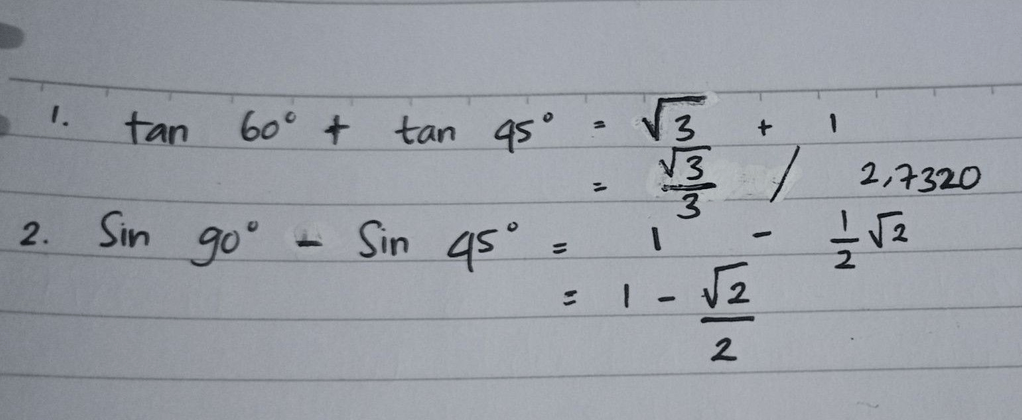 1. tan 60° + tan 45° = √3 + 1
= √3/3 / 2,7320
2. Sin 90° - Sin 45° = 1 - 1/2 √2
= 1 - √2/2